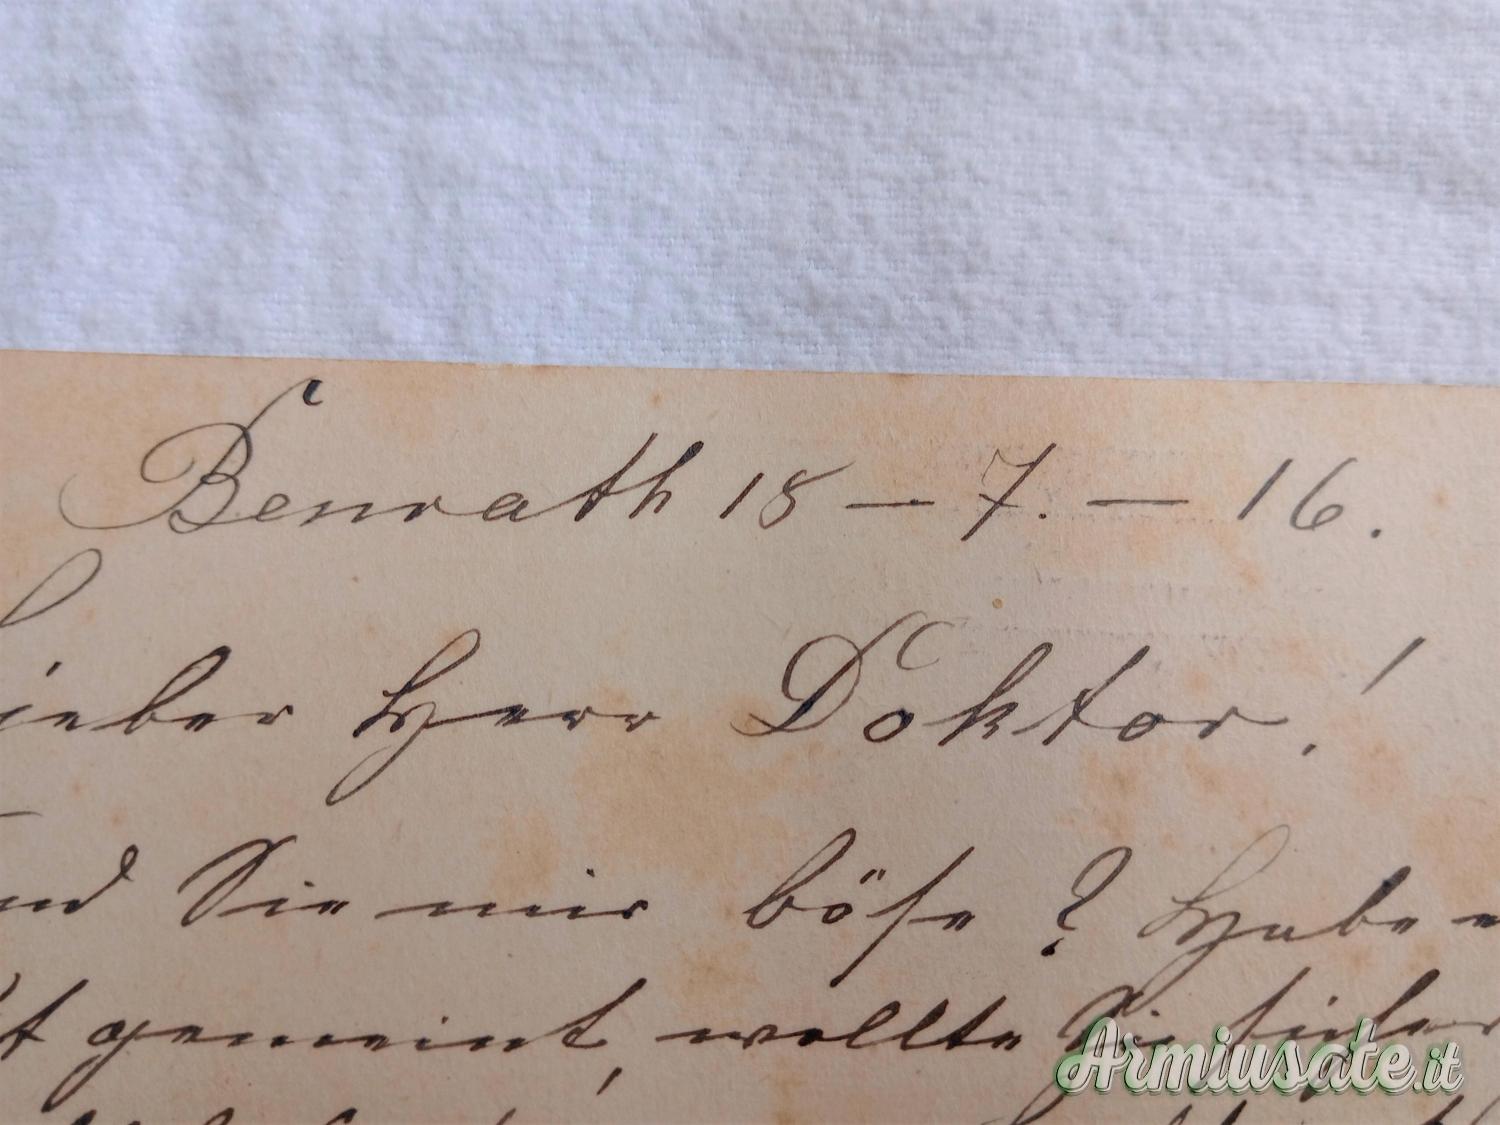 Benrath 18 – 7. – 16.
Lieber Herr Doktor!
Sie mir böse? Habe
gemeint, wollte Sie sicher
Armiusate.it